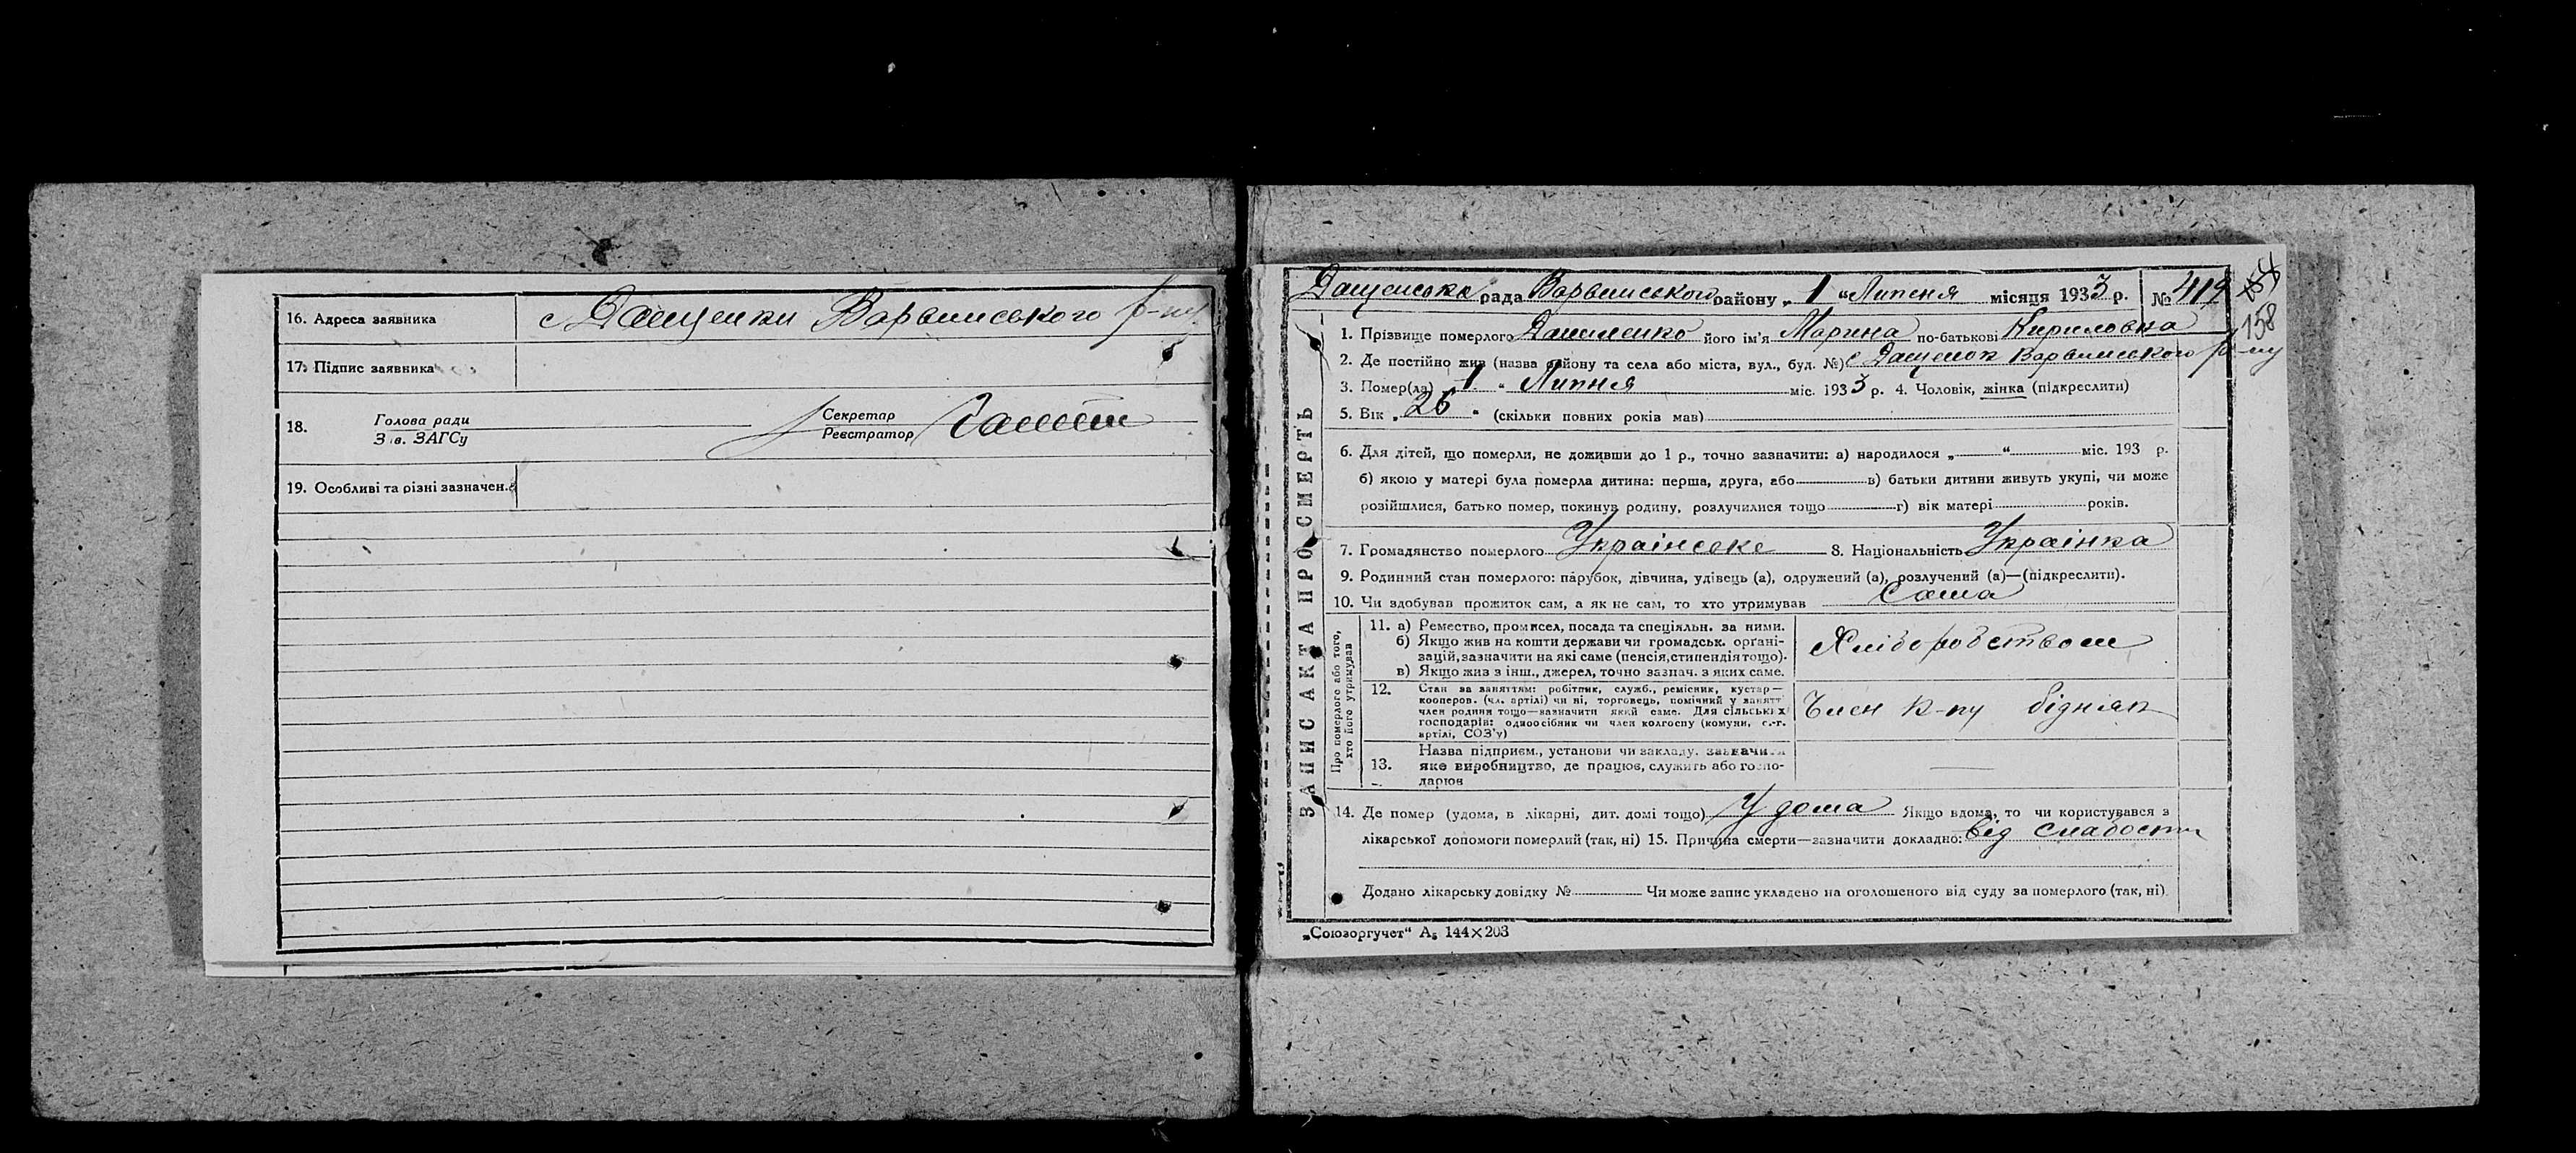 16. Адреса заявника с Дащенки Варвинського р-ну
17. Підпис заявника
18. Голова ради Секретар
Зав. ЗАГСу Реєстратор
19. Особливі та різні зазначен.
Дащенська рада Варвинського району „ 1 “ Липня місяця 1933 р. № 419
158
ЗАПИС АКТА ПРО СМЕРТЬ
1. Прізвище померлого Даниленко його ім'я Марина по-батькові Кириловна
2. Де постійно жив (назва району та села або міста, вул., буд. №) с Дащенок Варвинського р-ну
3. Помер(ла) „ 1 “ Липня міс. 1933 р. 4. Чоловік, жінка (підкреслити)
5. Вік „ 26 “ (скільки повних років мав)
6. Для дітей, що померли, не доживши до 1 р., точно зазначити: а) народилося „ “ міс. 193 р.
б) якою у матері була померла дитина: перша, друга, або в) батьки дитини живуть укупі, чи може
розійшлися, батько помер, покинув родину, розлучилися тощо г) вік матері років.
7. Громадянство померлого Українське 8. Національність Українка
9. Родинний стан померлого: парубок, дівчина, удівець (а), одружений (а), розлучений (а)—(підкреслити).
10. Чи здобував прожиток сам, а як не сам, то хто утримував Сама
Про померлого або того, хто його утримував
11. а) Ремество, промисел, посада та спеціяльн. за ними.
б) Якщо жив на кошти держави чи громадськ. органі-
зацій, зазначити на які саме (пенсія, стипендія тощо).
в) Якщо жив з інш., джерел, точно зазнач. з яких саме.
Хліборобством
12. Стан за заняттям: робітник, служб., ремісник, кустар—
кооперов. (чл. артілі) чи ні, торговець, помічний у занятт
член родини тощо—зазначити який саме. Для сільських
господарів: одноосібник чи член колгоспу (комуни, с.-г.
артілі, СОЗ'у)
Член к-пу бідняк
13. Назва підприєм., установи чи закладу, зазначити
яке виробництво, де працює, служить або госпо-
дарює
14. Де помер (удома, в лікарні, дит. домі тощо) У дома Якщо вдома, то чи користувався з
лікарської допомоги померлий (так, ні) 15. Причина смерти—зазначити докладно: Від слабости
Додано лікарську довідку № Чи може запис укладено на оголошеного від суду за померлого (так, ні)
„Союзоргучет“ А₅ 144×203